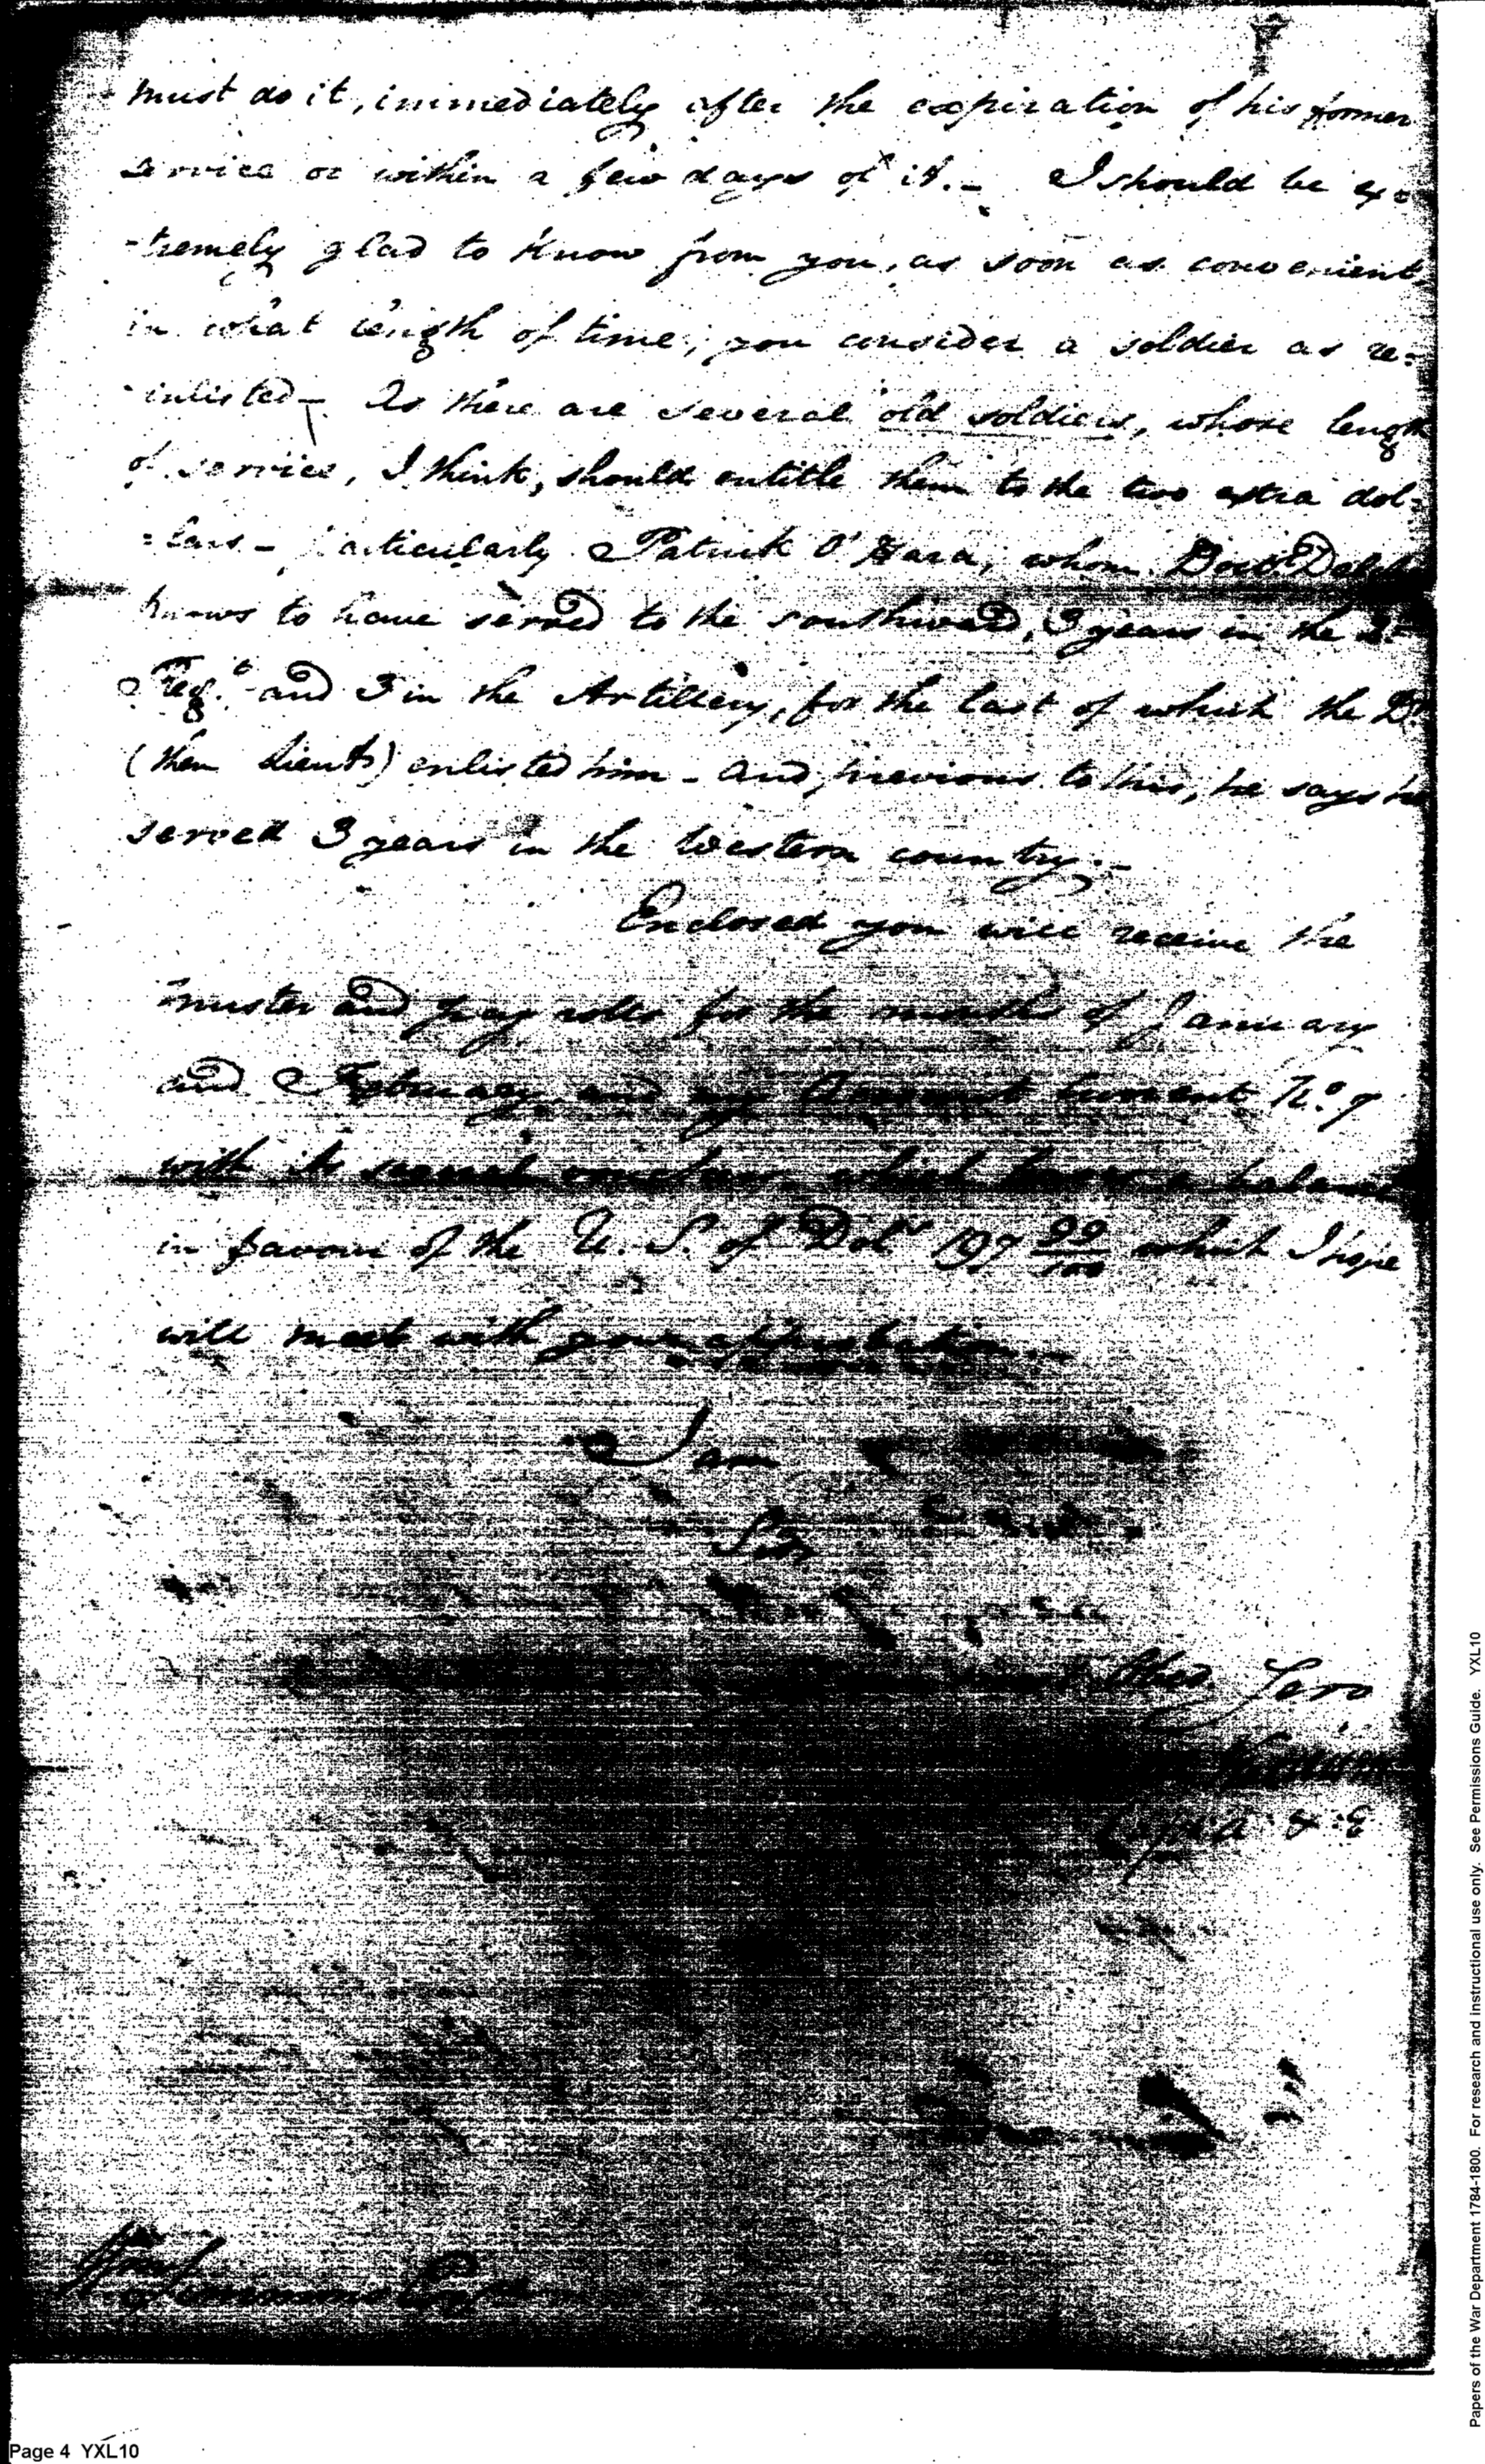 must do it, immediately after the expiration of his former
service or within a few days of it. - I should be ex=
-tremely glad to know from you, as soon as convenient
in what length of time, you consider a soldier as re=
-inlisted - As there are several old soldiers, whose length
of service, I think, should entitle them to the two extra dol=
=lars - particularly Patrick O'Hara, whom Doctr
knows to have served to the southward, 3 years in the
Regt. and 3 in the Artillery, for the last of which the Dr
(then Lieut) enlisted him - and, previous to this, he says he
served 3 years in the Western country. -
Enclosed you will receive the
muster and pay rolls for the months of January
and February, and my Account Current No. 7
with its several vouchers which leaves a balance
in favour of the U. S. of Dolrs 197 99/100 which I hope
will meet with your approbation. -
I am
Sir
most Obed. Serv

Capt A & E
Simmons Esqr
Page 4 YXL10
Papers of the War Department 1784-1800. For research and instructional use only. See Permissions Guide. YXL10